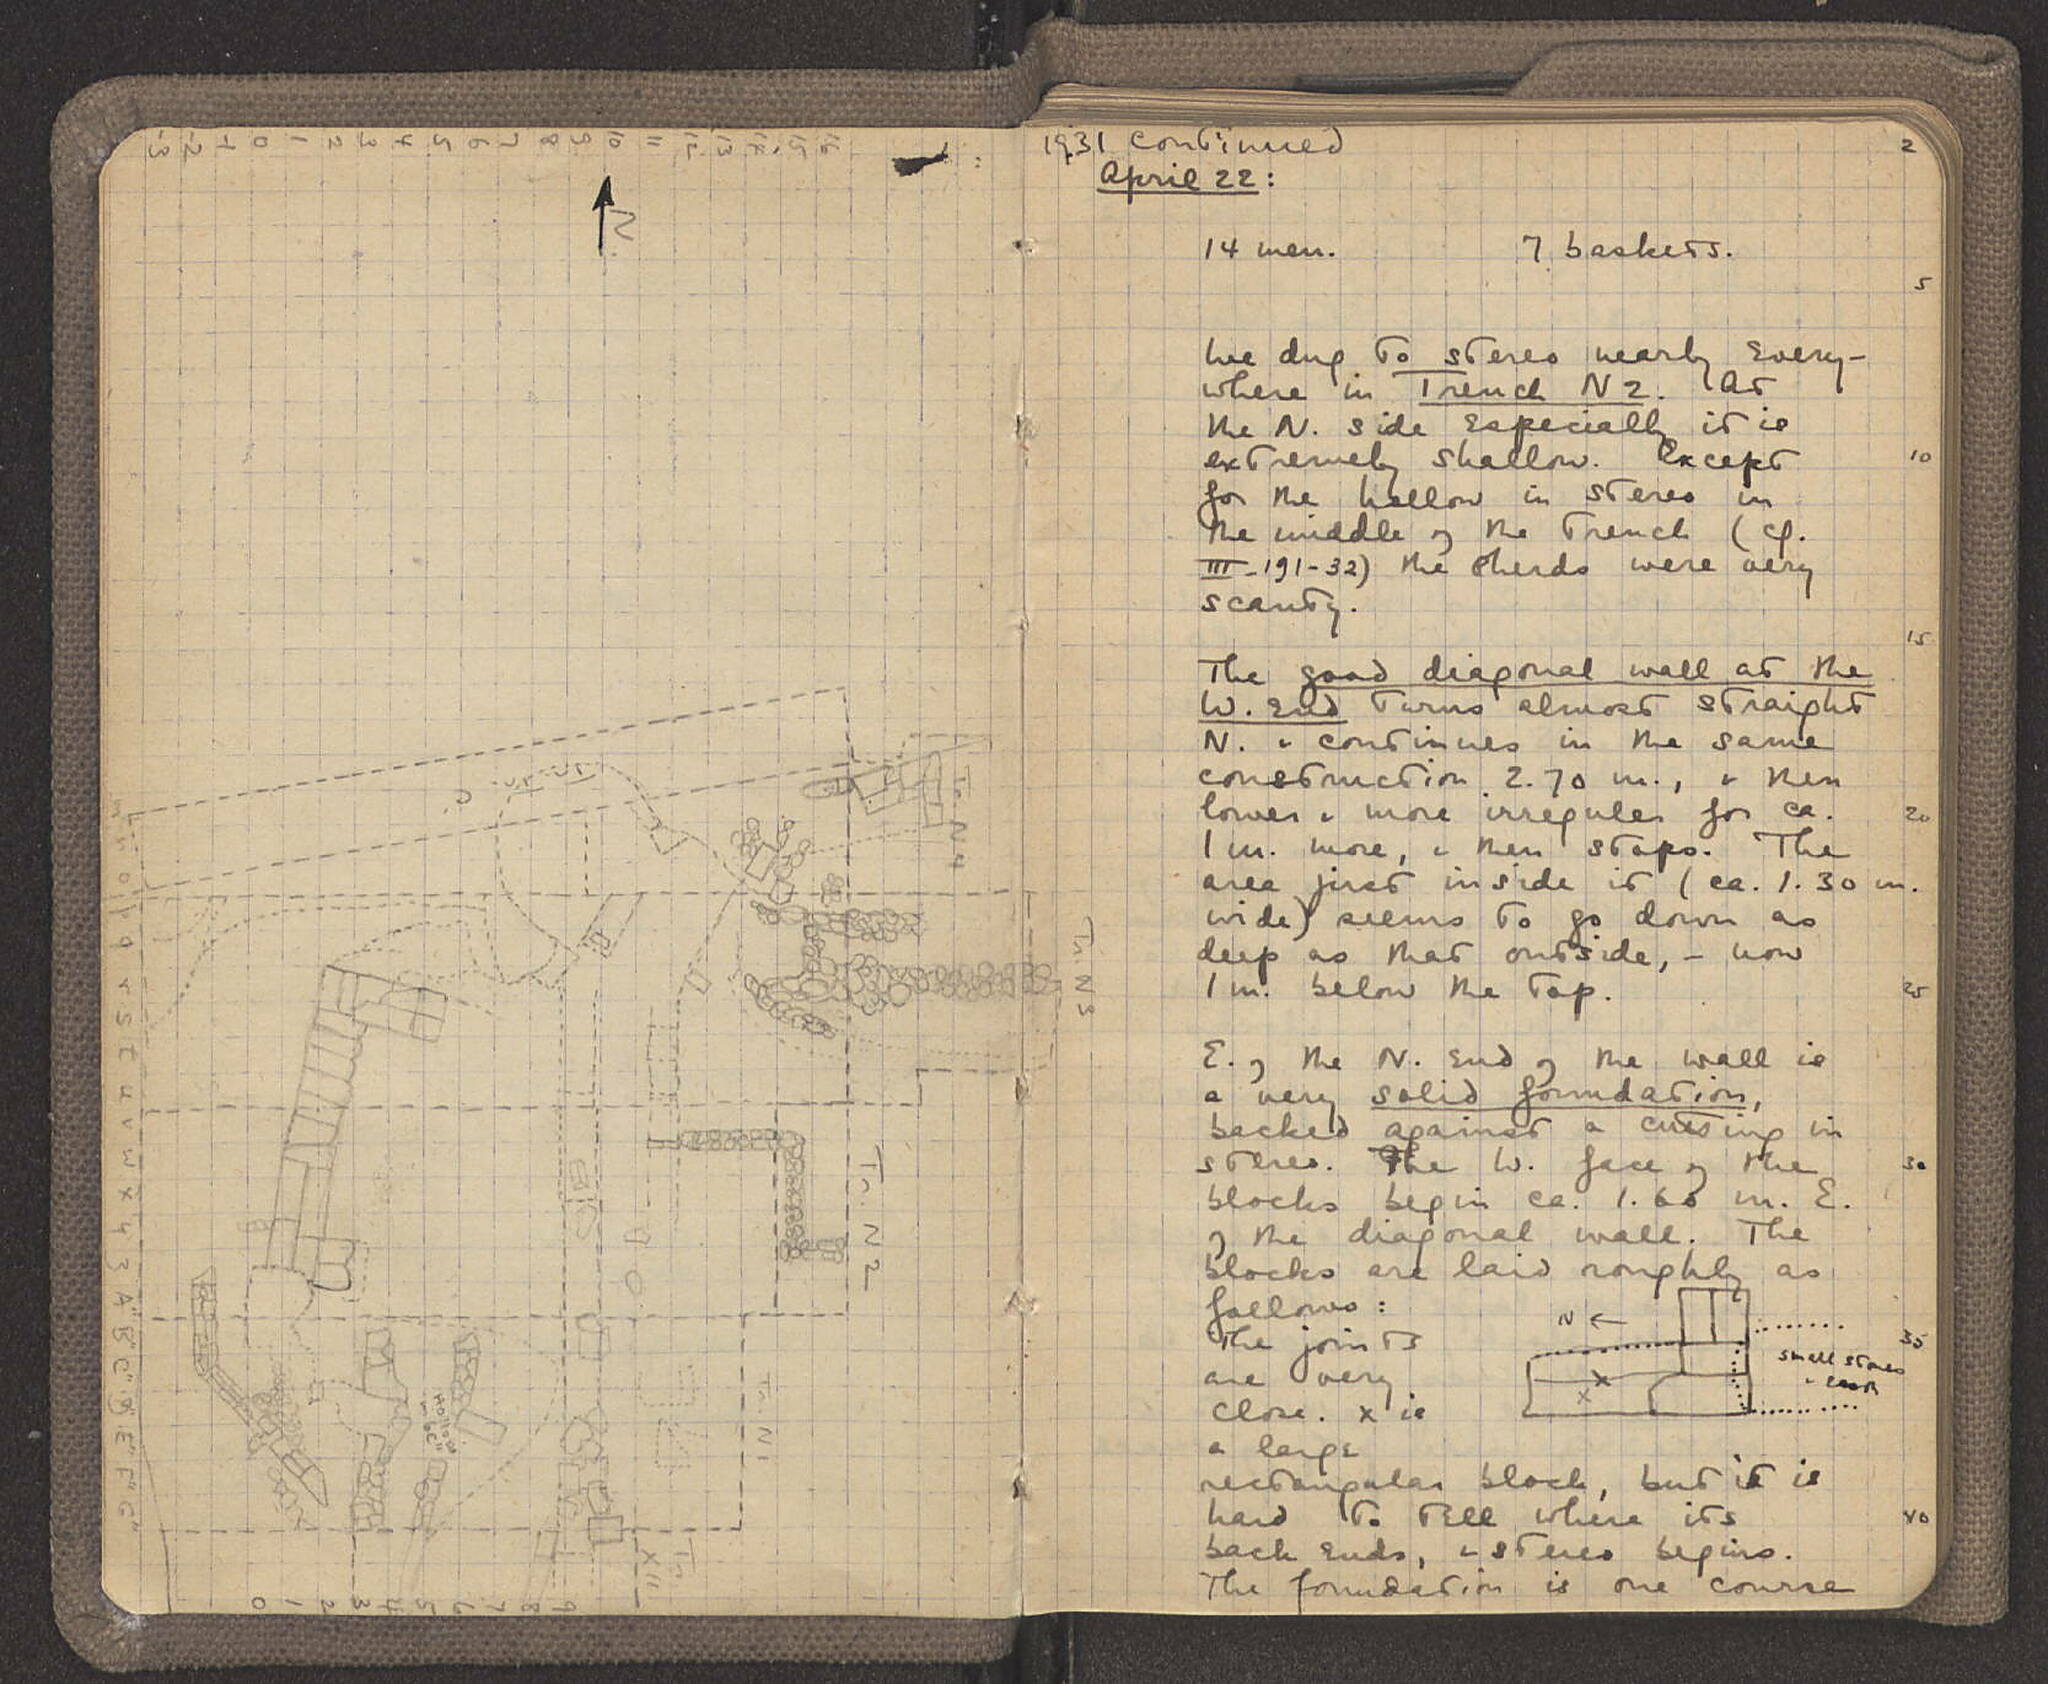 -3 -2 -1 0 1 2 3 4 5 6 7 8 9 10 11 12 13 14 15 16
N
Tr. N4
m n o p q r s t u v w x y z A" B" C" D" E" F" G"
Tr. N3
Tr. N2
Hollow
Tr. N1
Tr. XIII
0 1 2 3 4 5 6 7 8 9
1931 continued
2
April 22:
14 men. 7 baskets.
5
We dug to stereo nearly every-
where in Trench N2. At
the N. side especially it is
extremely shallow. Except
10
for the hollow in stereo in
the middle of the trench (cf.
III-191-32) the sherds were very
scanty.
15
The good diagonal wall at the
W. end turns almost straight
N. & continues in the same
construction 2.70 m., & then
lower & more irregular for ca.
20
1 m. more, & then stops. The
area just inside it (ca. 1.30 m.
wide) seems to go down as
deep as that outside, - now
1 m. below the top.
25
E. of the N. end of the wall is
a very solid foundation,
backed against a cutting in
stereo. The W. face of the
30
blocks begin ca. 1.60 m. E.
of the diagonal wall. The
blocks are laid roughly as
follows:
N ←
The joints
35
small stones
& earth
are very
close. x is
x
x
a large
rectangular block, but it is
hard to tell where its
40
back ends, & stereo begins.
The foundation is one course